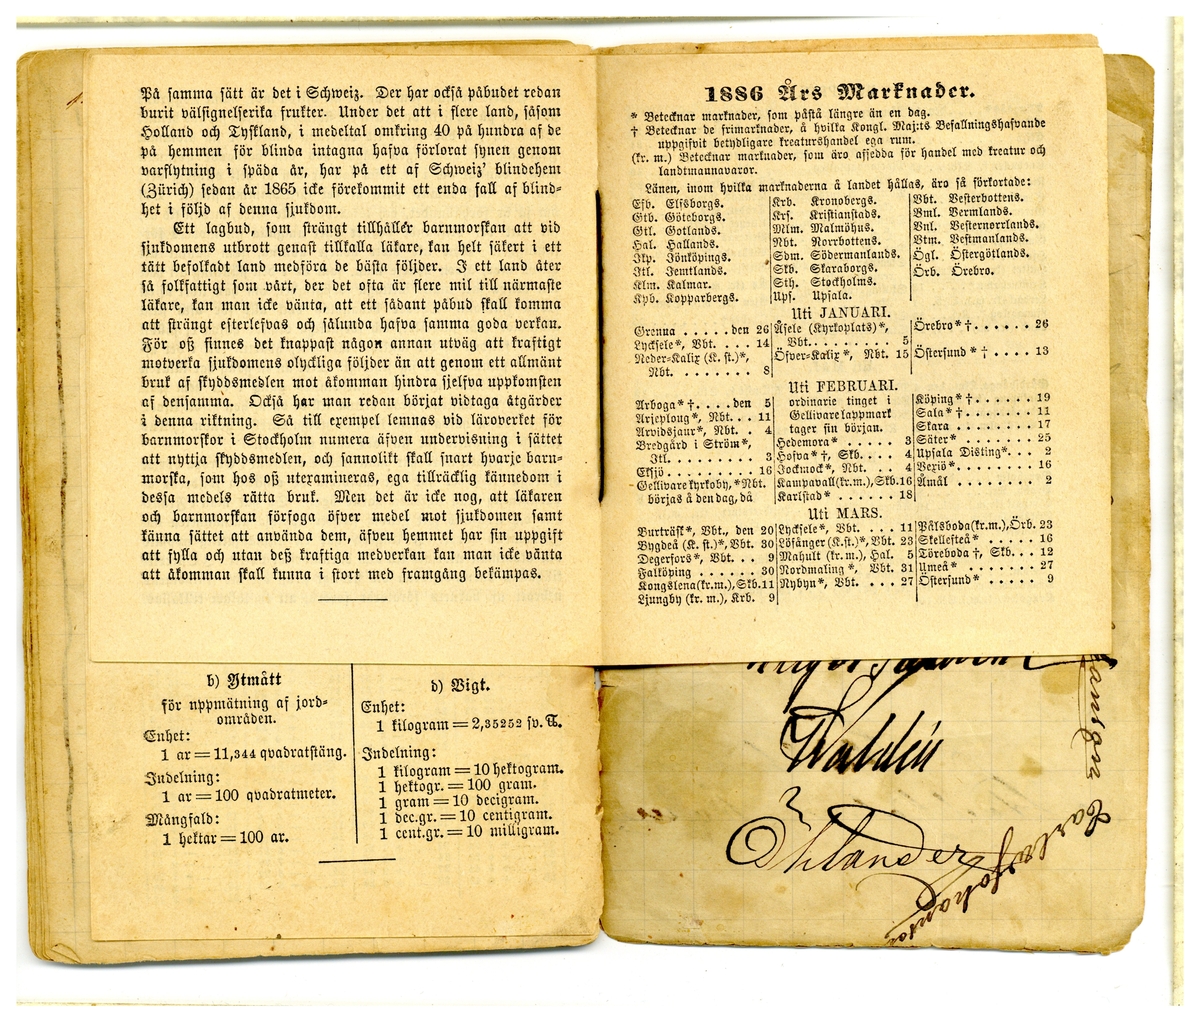 På samma sätt är det i Schweiz. Der har också påbudet redan
burit välsignelserika frukter. Under det att i flere land, såsom
Holland och Tyskland, i medeltal omkring 40 på hundra af de
på hemmen för blinda intagna hafva förlorat synen genom
varflytning i späda år, har på ett af Schweiz' blindehem
(Zürich) sedan år 1865 icke förekommit ett enda fall af blind-
het i följd af denna sjukdom.
Ett lagbud, som strängt tillhåller barnmorskan att vid
sjukdomens utbrott genast tillkalla läkare, kan helt säkert i ett
tätt befolkadt land medföra de bästa följder. I ett land åter
så folkfattigt som vårt, der det ofta är flere mil till närmaste
läkare, kan man icke vänta, att ett sådant påbud skall komma
att strängt efterlefvas och sålunda hafva samma goda verkan.
För oss finnes det knappast någon annan utväg att kraftigt
motverka sjukdomens olyckliga följder än att genom ett allmänt
bruk af skyddsmedlen mot åkomman hindra sjelfva uppkomsten
af densamma. Också har man redan börjat vidtaga åtgärder
i denna riktning. Så till exempel lemnas vid läroverket för
barnmorskor i Stockholm numera äfven undervisning i sättet
att nyttja skyddsmedlen, och sannolikt skall snart hvarje barn-
morska, som hos oss utexamineras, ega tillräcklig kännedom i
dessa medels rätta bruk. Men det är icke nog, att läkaren
och barnmorskan förfoga öfver medel mot sjukdomen samt
känna sättet att använda dem, äfven hemmet har sin uppgift
att fylla och utan dess kraftiga medverkan kan man icke vänta
att åkomman skall kunna i stort med framgång bekämpas.
b) Ytmått
för uppmätning af jord-
områden.
Enhet:
1 ar = 11,344 qvadratstäng.
Indelning:
1 ar = 100 qvadratmeter.
Mångfald:
1 hektar = 100 ar.
d) Vigt.
Enhet:
1 kilogram = 2,35252 sv. ℔.
Indelning:
1 kilogram = 10 hektogram.
1 hektogr. = 100 gram.
1 gram = 10 decigram.
1 dec.gr. = 10 centigram.
1 cent.gr. = 10 milligram.
1886 Års Marknader.
* Betecknar marknader, som påstå längre än en dag.
† Betecknar de frimarknader, å hvilka Kongl. Maj:ts Befallningshafvande
uppgifvit betydligare kreaturshandel ega rum.
(kr. m.) Betecknar marknader, som äro afsedda för handel med kreatur och
landtmannavaror.
Länen, inom hvilka marknaderna å landet hållas, äro så förkortade:
Efb. Elfsborgs.
Gtb. Göteborgs.
Gtl. Gotlands.
Hal. Hallands.
Jkp. Jönköpings.
Jtl. Jemtlands.
Klm. Kalmar.
Kpb. Kopparbergs.
Krb. Kronobergs.
Krs. Kristianstads.
Mlm. Malmöhus.
Nbt. Norrbottens.
Sdm. Södermanlands.
Skb. Skaraborgs.
Sth. Stockholms.
Ups. Upsala.
Vbt. Vesterbottens.
Vml. Vermlands.
Vnl. Vesternorrlands.
Vtm. Vestmanlands.
Ögl. Östergötlands.
Örb. Örebro.
Uti JANUARI.
Grenna . . . . . den 26
Lycksele*, Vbt. . . . 14
Neder-Kalix (K. st.)*,
Nbt. . . . . . . . 8
Åsele (Kyrkoplats)*,
Vbt. . . . . . . . 5
Öfver-Kalix*, Nbt. 15
Örebro* † . . . . . . 26
Östersund* † . . . . 13
Uti FEBRUARI.
Arboga* † . . . . den 5
Arjeplong*, Nbt. . . 11
Arvidsjaur*, Nbt. . 4
Bredgård i Ström*,
Jtl. . . . . . . . . 3
Eksjö . . . . . . . . 16
Gellivare kyrkoby, *Nbt.
börjas å den dag, då
ordinarie tinget i
Gellivare lappmark
tager sin början.
Hedemora* . . . . . 3
Hofva* †, Skb. . . . 4
Jockmock*, Nbt. . . 4
Kampavall (kr. m.), Skb. 16
Karlstad* . . . . . . 18
Köping* † . . . . . . 19
Sala* † . . . . . . . 11
Skara . . . . . . . . 17
Säter* . . . . . . . 25
Upsala Disting*. . . 2
Vexiö* . . . . . . . 16
Åmål . . . . . . . . 2
Uti MARS.
Burträsk*, Vbt., den 20
Bygdeå (K. st.)*, Vbt. 30
Degerfors*, Vbt. . . 9
Falköping . . . . . . 30
Kongslena (kr. m.), Skb. 11
Ljungby (kr. m.), Krb. 9
Lycksele*, Vbt. . . . 11
Lösånger (K. st.)*, Vbt. 23
Mahult (kr. m.), Hal. 5
Nordmaling*, Vbt. 31
Nybyn*, Vbt. . . . 27
Pålsboda (kr. m.), Örb. 23
Skellefteå* . . . . . 16
Töreboda †, Skb. . . 12
Umeå* . . . . . . . 27
Östersund* . . . . . 9
Carl Johansson